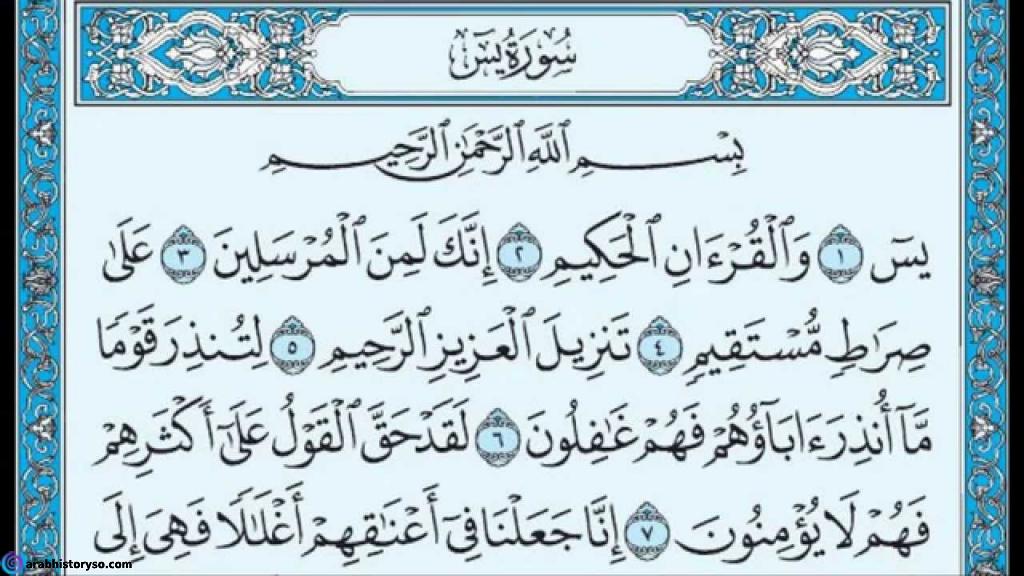 سُورَةُ يسٓ
بِسْمِ ٱللَّهِ ٱلرَّحْمَٰنِ ٱلرَّحِيمِ
يسٓ ١ وَٱلْقُرْءَانِ ٱلْحَكِيمِ ٢ إِنَّكَ لَمِنَ ٱلْمُرْسَلِينَ ٣ عَلَىٰ
صِرَٰطٍ مُّسْتَقِيمٍ ٤ تَنزِيلَ ٱلْعَزِيزِ ٱلرَّحِيمِ ٥ لِتُنذِرَ قَوْمًا
مَّآ أُنذِرَ ءَابَآؤُهُمْ فَهُمْ غَٰفِلُونَ ٦ لَقَدْ حَقَّ ٱلْقَوْلُ عَلَىٰٓ أَكْثَرِهِمْ
فَهُمْ لَا يُؤْمِنُونَ ٧ إِنَّا جَعَلْنَا فِىٓ أَعْنَٰقِهِمْ أَغْلَٰلًا فَهِىَ إِلَى
arabhistoryso.com